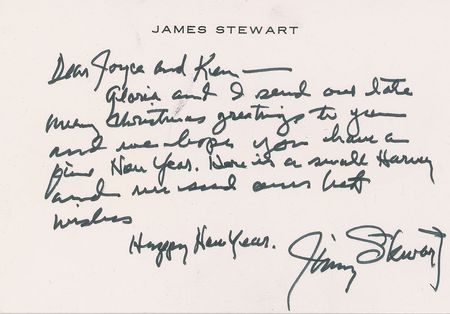 JAMES STEWART
Dear Joyce and Ken —
Gloria and I send our late
merry Christmas greetings to you
and we hope you have a
fine New Year. Here is a small Harvey
and we send our best
wishes
Happy New Year.
Jimmy Stewart